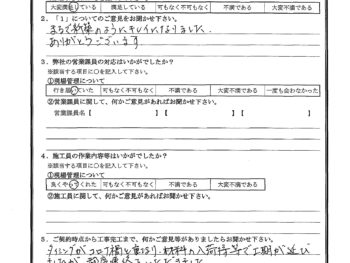 大変満足している 満足している 可もなく不可もなく 不満である 大変不満である
2．「1」についてのご意見をお聞かせ下さい。
まるで新築のようにキレイになりました。
ありがとうございます
3．弊社の営業課員の対応はいかがでしたか？
※該当する項目に○を記入して下さい。
①現場管理について
行き届いていた 可もなく不可もなく 不満である 大変不満である 一度も会わなかった
②営業課員に関して、何かご意見があればお聞かせ下さい。
営業課員名【 】【 】【 】
4．施工員の作業内容等はいかがでしたか？
※該当する項目に○を記入して下さい。
①現場管理について
良くやってくれた 可もなく不可もなく 不満である 大変不満である
②施工員に関して、何かご意見があればお聞かせ下さい。
5．ご契約時点から工事完工まで、何かご意見等がありましたらお聞かせ下さい。
タイミングがコロナ禍と重なり、材料の入荷待等で工期が延び